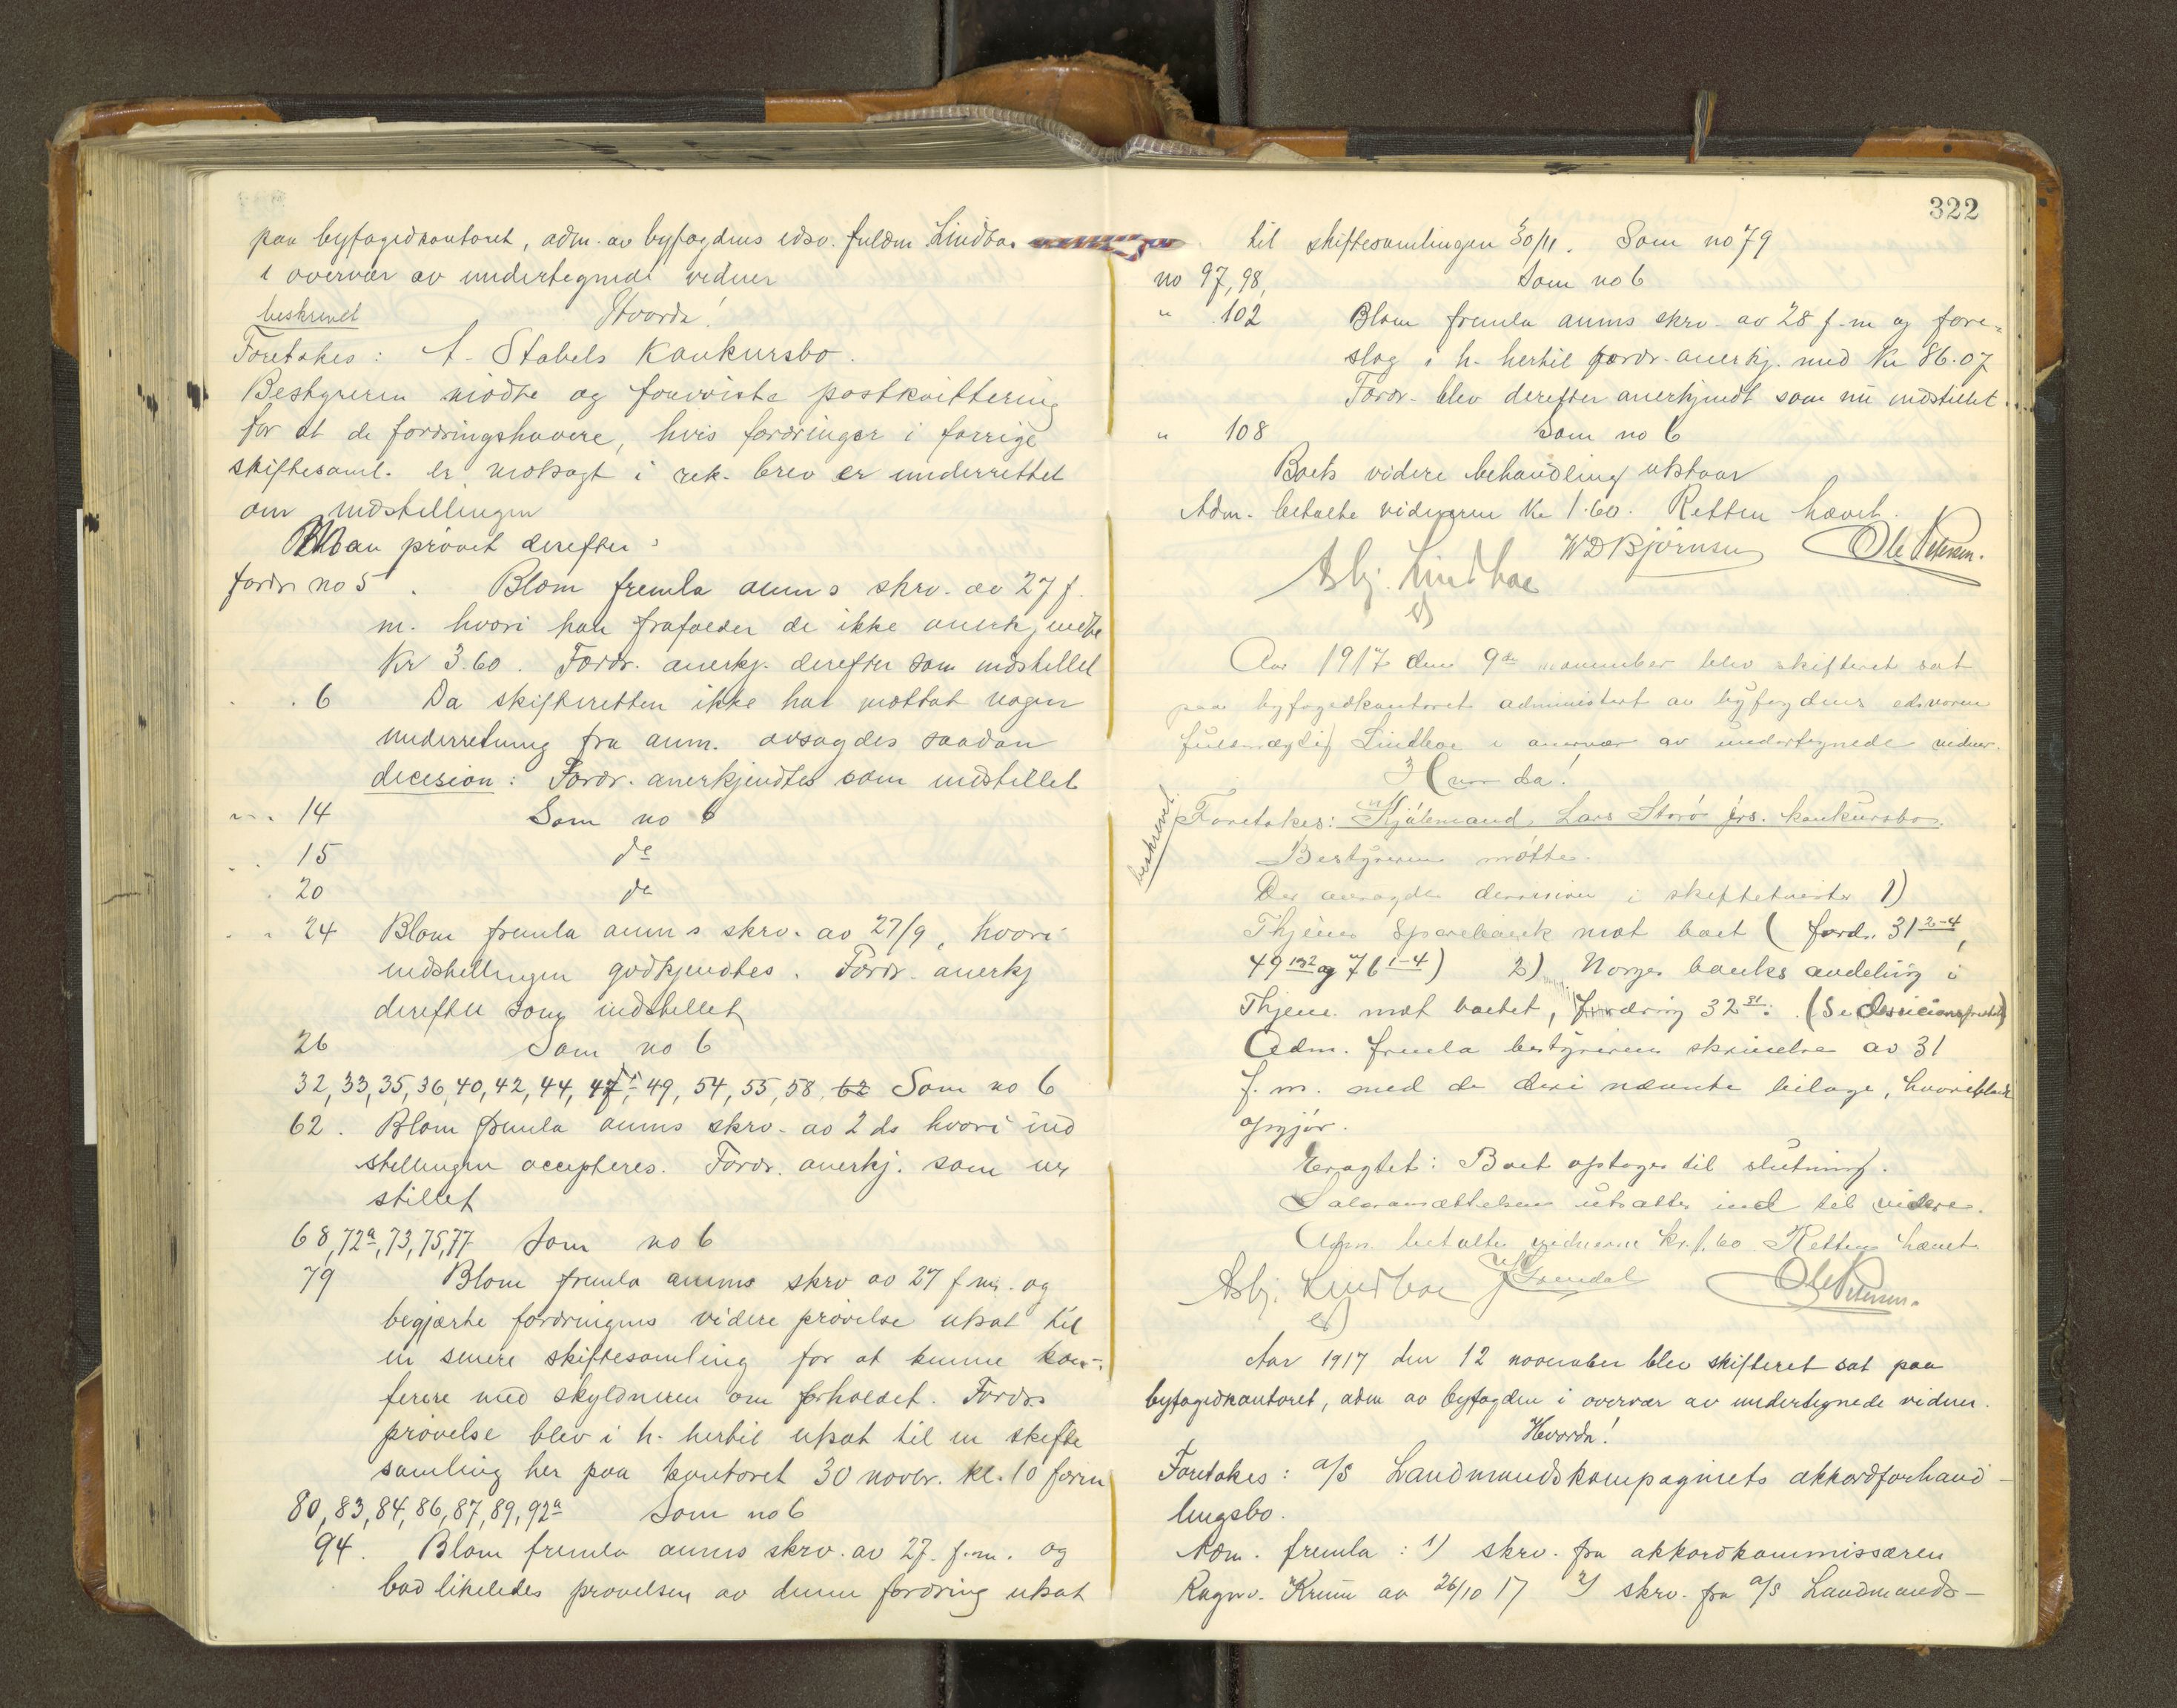 paa byfogedkontoret, adm. av byfogdens edsv. fuldm Lindboe
i overvær av undertegnede vidner
beskrevet Hvorda!
Foretokes: A. Stabels Konkursbo.
Bestyreren mødte og foreviste postkvittering
for at de fordringshavere, hvis fordringer i forrige
skiftesaml. er motsagt i rek. brev er underrettet
om indstillingen
Man prøvet derefter:
fordr no 5. Blom fremla anm s skrv. av 27 f.
m. hvori han frafalder de ikke anerkjendte
Kr 3.60. Fordr. anerkj. derefter som indstillet
6 Da skifteretten ikke har mottat nogen
underretning fra anm. avsagdes saadan
decision: Fordr. anerkjendtes som indstillet
14 Som no 6
15 do
20 do
24 Blom fremla anm s skrv. av 27/9, hvori
indstillingen godkjendtes. Fordr. anerkj
derefter som indstillet
26 Som no 6
32, 33, 35, 36, 40, 42, 44, 47, 49, 54, 55, 58, 62 Som no 6
62. Blom fremla anms skrv. av 2 ds hvori ind
stillingen accepteres. Fordr. anerkj. som
stillet
68, 72a, 73, 75, 77 Som no 6
79 Blom fremla anms skrv av 27 f.m. og
begjærte fordringens videre prøvelse utsat til
en senere skiftesamling for at kunne kon-
ferere med skyldneren om forholdet. Fordrs
prøvelse blev i h. hertil utsat til en skifte
samling her paa kontoret 30 novbr. kl. 10 form
80, 83, 84, 86, 87, 89, 92a Som no 6
94. Blom fremla anms skrv. av 27. f.m. og
bad likeledes prøvelsen av denne fordring utsat
322
til skiftesamlingen 30/11. Som no 79
no 97, 98, Som no 6
" 102 Blom fremla anms skrv. av 28 f.m og fore-
slog i h. hertil fordr. anerkj. med Kr 86.07
Fordr. blev derefter anerkjendt som nu indstillet.
" 108 Som no 6
Boets videre behandling utstaar
Adm. betalte vidnerne Kr 1.60. Retten hævet.
Asbj. Lindboe W D Bjørnsen Ole Petersen.
Aar 1917 den 9de november blev skifteret sat
paa byfogedkontoret administert av byfogdens edsvoren
fuldmægtig Lindboe i overvær av undertegnede vidner.
Hvorda!
beskrevet
Foretokes: Kjøbmand Lars Storø jrs. konkursbo.
Bestyreren møtte.
Der avsagdes decision i skiftetvister 1)
Thjene Sparebank mot boet (ford. 31 2-4,
49 1-2 og 76 1-4) 2) Norges banks avdeling i
Thjene mot boet, fordring 32
Adm. fremla bestyrerens skrivelse av 31
f. m. med de deri nævnte bilage, hvoriblandt
opgjør.
Eragtet: Boet optages til slutning.
Salæransættelsen utsattes ind til videre.
Adm. betalte vidnerne kr. 1.60 Retten hævet
Asbj. Lindboe Ole Petersen.
Aar 1917 den 12 november blev skifteret sat paa
byfogedkontoret, adm av byfogden i overvær av undertegnede vidner.
Hvorda!
Foretokes: A/S Landmandskompagniets akkordforhand-
lingsbo.
Adm. fremla: 1) skrv. fra akkordkommissæren
Ragnv. Krum av 26/10 17 2) skrv. fra A/S Landmands-